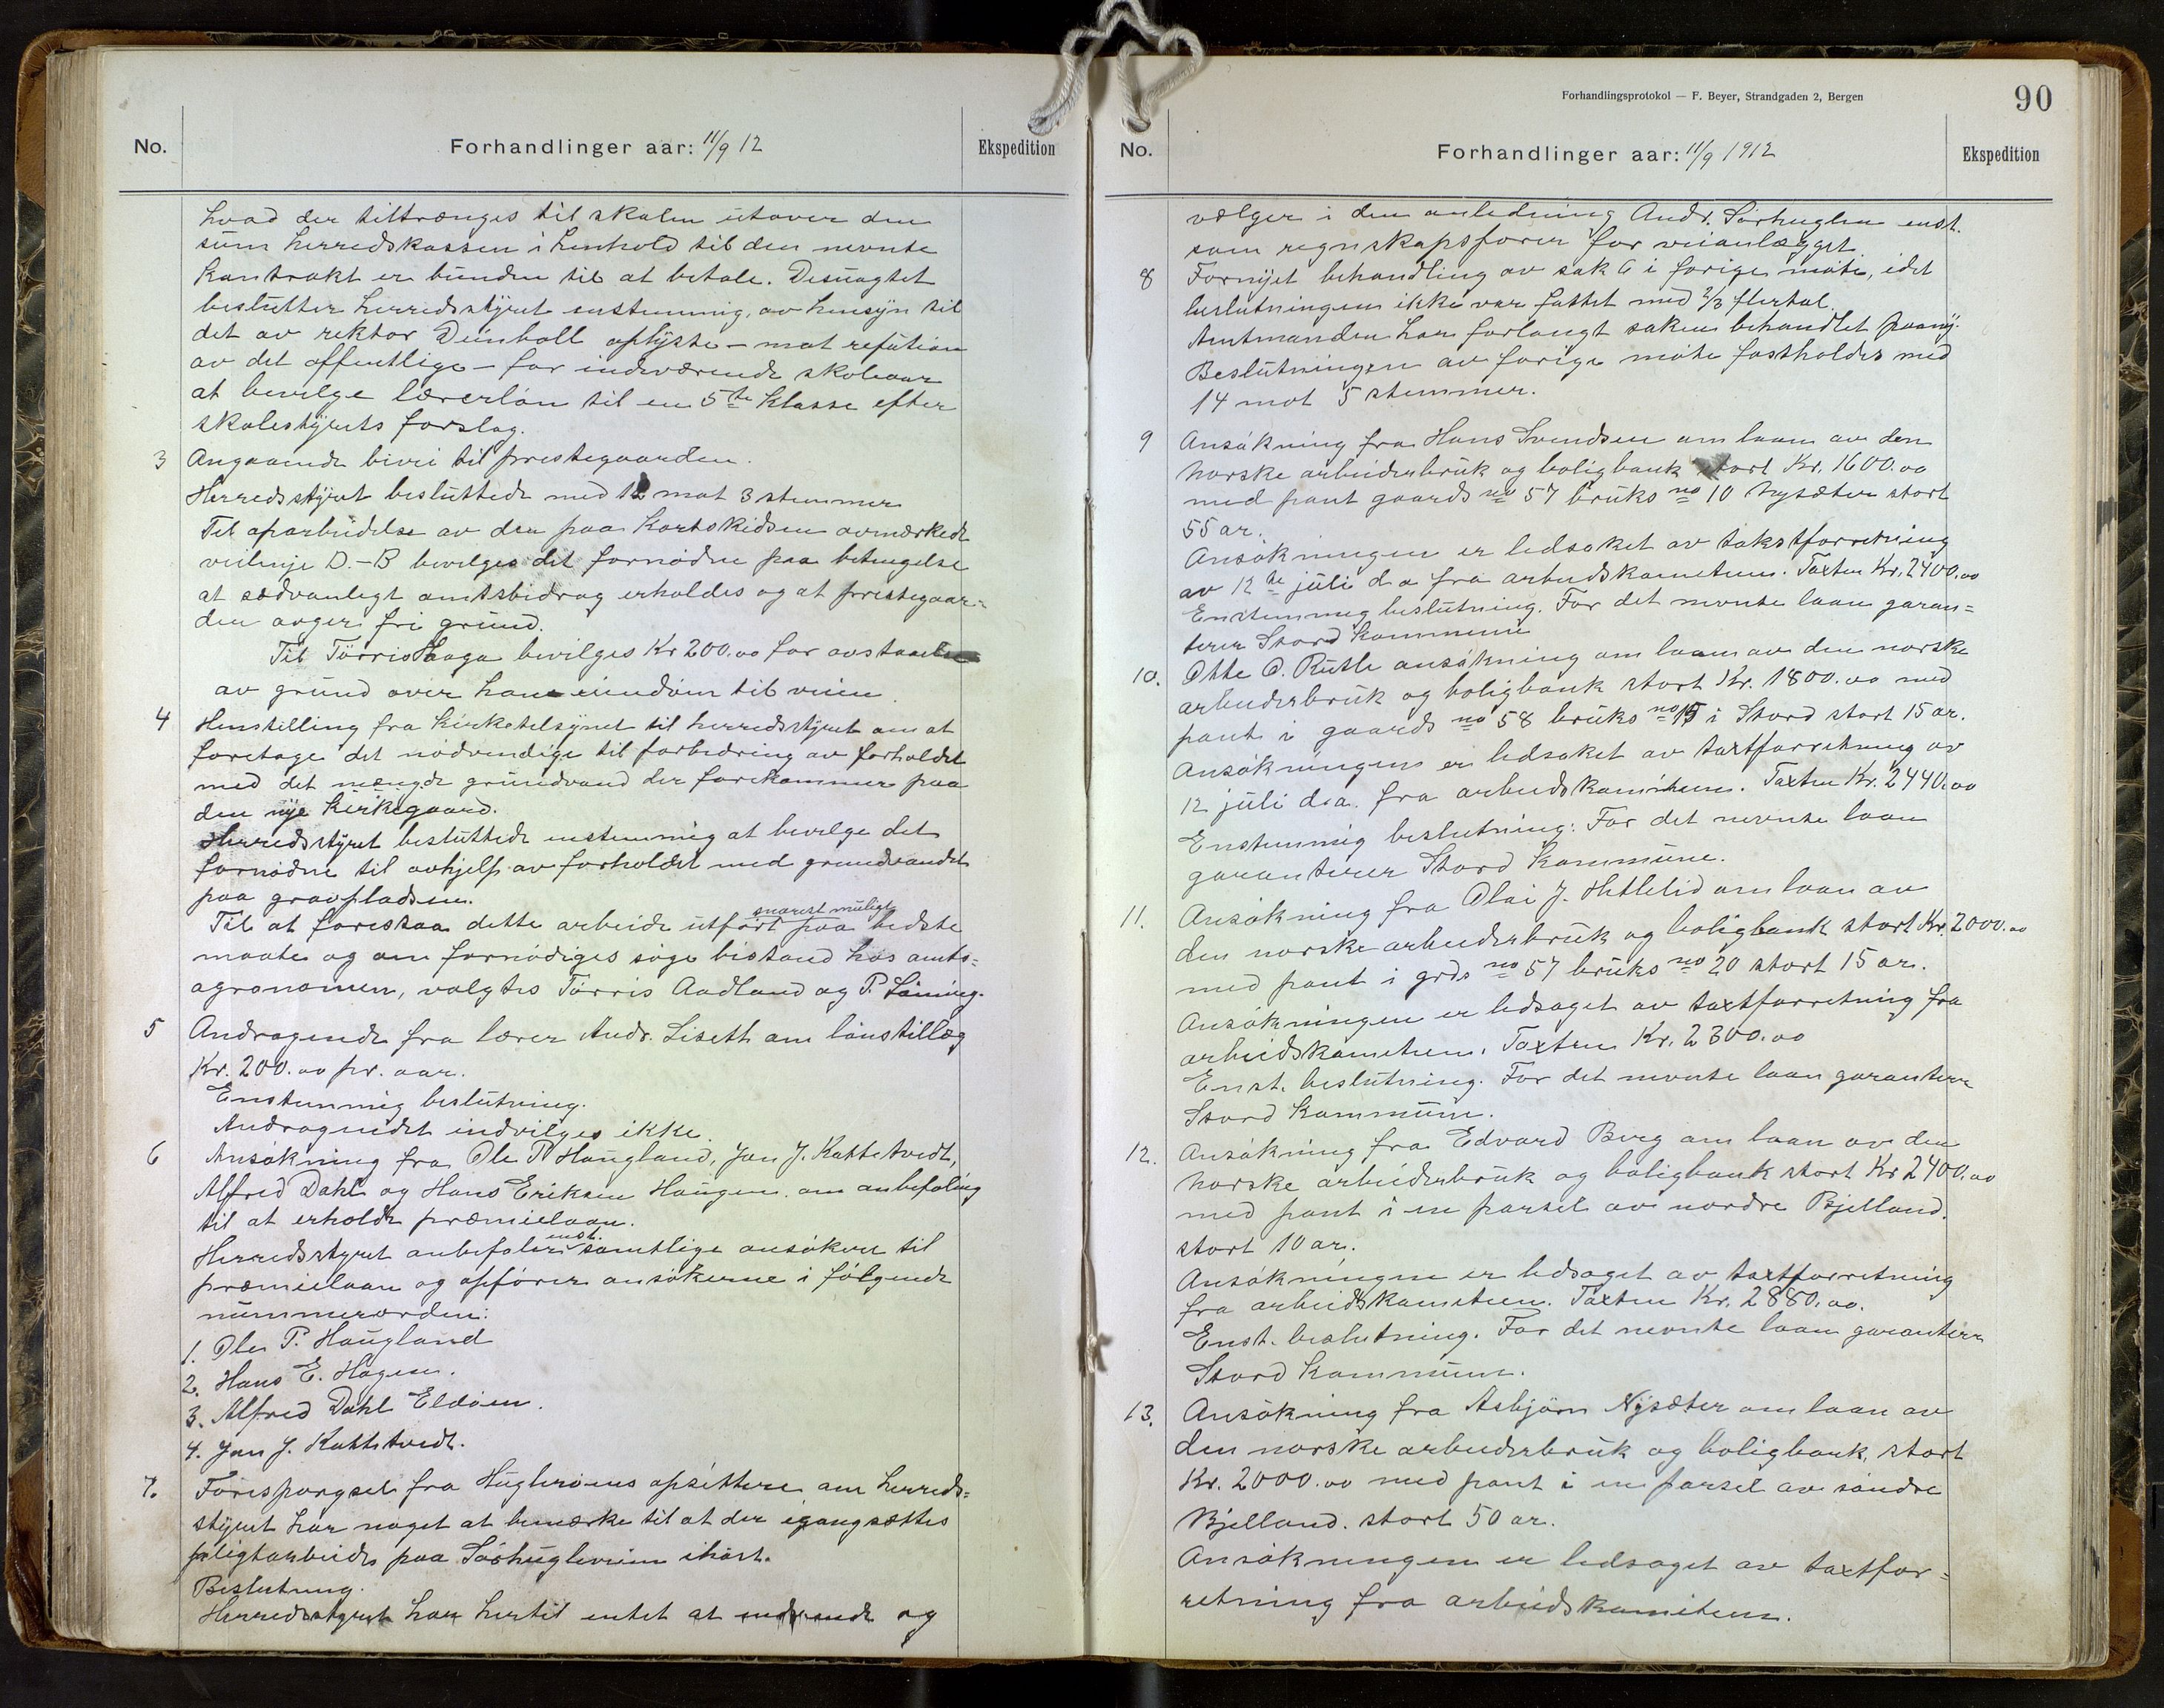 No.
Forhandlinger aar: 11/9 12
Ekspedition
hvad der tiltrænges til skolen utover den
sum herredskassen i henhold til den nevnte
kontrakt er bunden til at betale. Desuagtet
beslutter herredsstyret enstemmig, av hensyn til
det av rektor Deinboll oplyste – mot refusion
av det offentlige – for indværende skoleaar
at bevilge lærerløn til en 5te klasse efter
skolestyrets forslag.
3 Angaaende bivei til prestegaarden.
Herredsstyret besluttede med 12 mot 3 stemmer
Til oparbeidelse av den paa kartskidsen avmærkede
veilinje D.-B bevilges det fornødne paa betingelse
at sedvanlegt amtsbidrag erholdes og at prestegaar=
den avgir fri grund.
Til Tørris Haaga bevilges Kr 200.00 for avstaaelse
av grund over hans eiendom til veien
4 Henstilling fra kirketilsynet til herredsstyret om at
foretage det nødvendige til forbedring av forholdet
med det mængde grundvand der forekommer paa
den nye kirkegaard.
Herredsstyret besluttede enstemmig at bevilge det
fornødne til avhjelp av forholdet med grundvandet
paa gravpladsen.
snarest muligt
Til at forestaa dette arbeide utført paa bedste
maate og om fornødiges søge bistand hos amts=
agronomen, valgtes Tørris Aadland og P. Løning.
5 Andragende fra lærer Andr. Liseth om lønstillæg
Kr. 200.00 pr. aar.
Enstemmig beslutning.
Andragendet indvilges ikke.
6 Ansøkning fra Ole P Haugland, Jon J. Kattetvedt,
Alfred Dahl og Hans Eriksen Haugen om anbefaling
til at erholde præmielaan.
enst.
Herredsstyret anbefaler samtlige ansøkere til
præmielaan og opfører ansøkerne i følgende
nummerorden:
1. Ole P. Haugland
2. Hans E. Hagen.
3. Alfred Dahl Eldøen.
4. Jon J. Kattetvedt.
7. Forespørgsel fra Hugløens opsittere om herreds=
styret har noget at bemærke til at der igangsættes
pligtarbeide paa Sørhugleveien ihøst.
Beslutning.
Herredsstyret har hertil intet at indvende og
Forhandlingsprotokol — F. Beyer, Strandgaden 2, Bergen
90
No.
Forhandlinger aar: 11/9 1912
Ekspedition
vælger i den anledning Andr. Sørhuglen enst.
som regnskapsfører for veianlægget
8 Fornyet behandling av sak 6 i forige møte, idet
beslutningen ikke var fattet med 2/3 flertal.
Amtmanden har forlangt saken behandlet paany.
Beslutningen av forige møte fastholdes med
14 mot 5 stemmer.
9 Ansøkning fra Hans Svendsen om laan av den
norske arbeiderbruk og boligbank stort Kr. 1600.00
med pant gaards no 57 bruks no 10 Nysæter stort
55 ar.
Ansøkningen er ledsaket av takstforretning
av 12te juli d a fra arbeidskometeen. Taxten Kr. 2400.00
Enstemmig beslutning. For det nevnte laan garan=
terer Stord kommune
10. Otte O. Rutle ansøkning om laan av den norske
arbeiderbruk og boligbank stort Kr. 1800.00 med
pant i gaards no 58 bruks no 15 i Stord stort 15 ar.
Ansøkningen er ledsaket av taxtforretning av
12 juli d.a. fra arbeidskomiteen. Taxten Kr. 2440.00
Enstemmig beslutning: For det nevnte laan
garanterer Stord kommune.
11. Ansøkning fra Olai J. Hetlelid om laan av
den norske arbeiderbruk og boligbank stort Kr. 2000.00
med pant i grds no 57 bruks no 20 stort 15 ar.
Ansøkningen er ledsaget av taxtforretning fra
arbeidskometeen. Taxten Kr. 2300.00
Enst. beslutning. For det nevnte laan garanterer
Stord kommune.
12. Ansøkning fra Edvard Berg om laan av den
norske arbeiderbruk og boligbank stort Kr 2400.00
med pant i en parsel av nordre Bjelland.
stort 10 ar.
Ansøkningen er ledsaget av taxtforretning
fra arbeidskometeen. Taxten Kr. 2880.00.
Enst. beslutning. For det nevnte laan garanterer
Stord kommune.
13. Ansøkning fra Asbjørn Nysæter om laan av
den norske arbeiderbruk og boligbank, stort
Kr. 2000.00 med pant i en parsel av søndre
Bjelland. stort 50 ar.
Ansøkningen er ledsaget av taxtfor=
retning fra arbeidskomiteen.